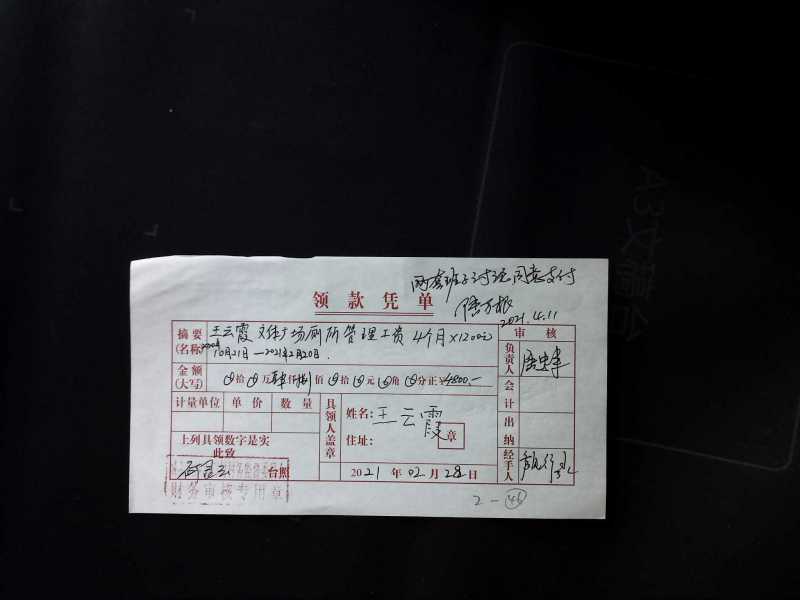 A3文稿
两套班子讨论同意支付
领款凭单
2021.4.11
摘要(名称)
王云霞 文体广场厕所管理工资 4个月×1200元
10月21日—2021年2月20日.
审核
负责人
会计
出纳
经手人
金额(大写)
拾 万 肆仟捌佰 拾 元 角 分正¥4800.-
计量单位 单价 数量
具领人盖章
姓名:王云霞
住址:
章
上列具领数字是实
此致
台照
2021年02月28日
财务审核专用章
2-46